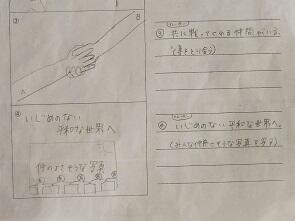 ③
B
A
共に戦ってくれる仲間がいる。
(手をとり合う)
④
いじめのない
平和な世界へ
仲のよさそうな写真
④
いじめのない平和な世界へ。
(みんな仲良さそうな写真を写す)